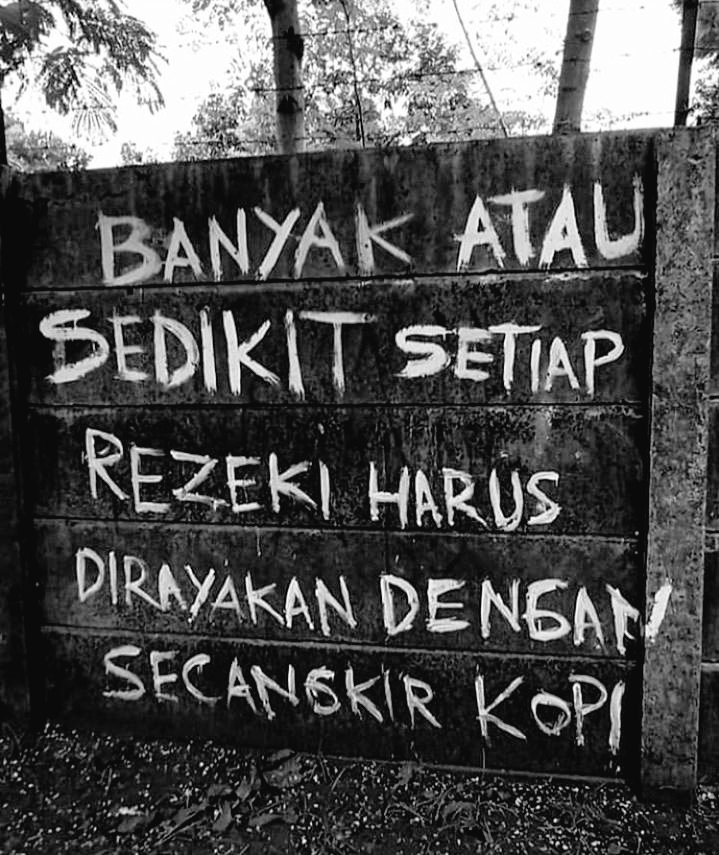 BANYAK ATAU
SEDIKIT SETIAP
REZEKI HARUS
DIRAYAKAN DENGAN
SECANGKIR KOPI